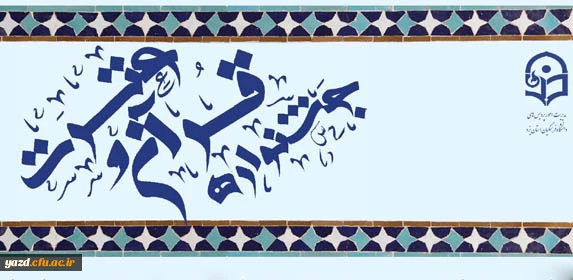 جشنواره قرآن و عترت
مدیریت امور پردیس‌های
دانشگاه فرهنگیان استان یزد
yazd.cfu.ac.ir